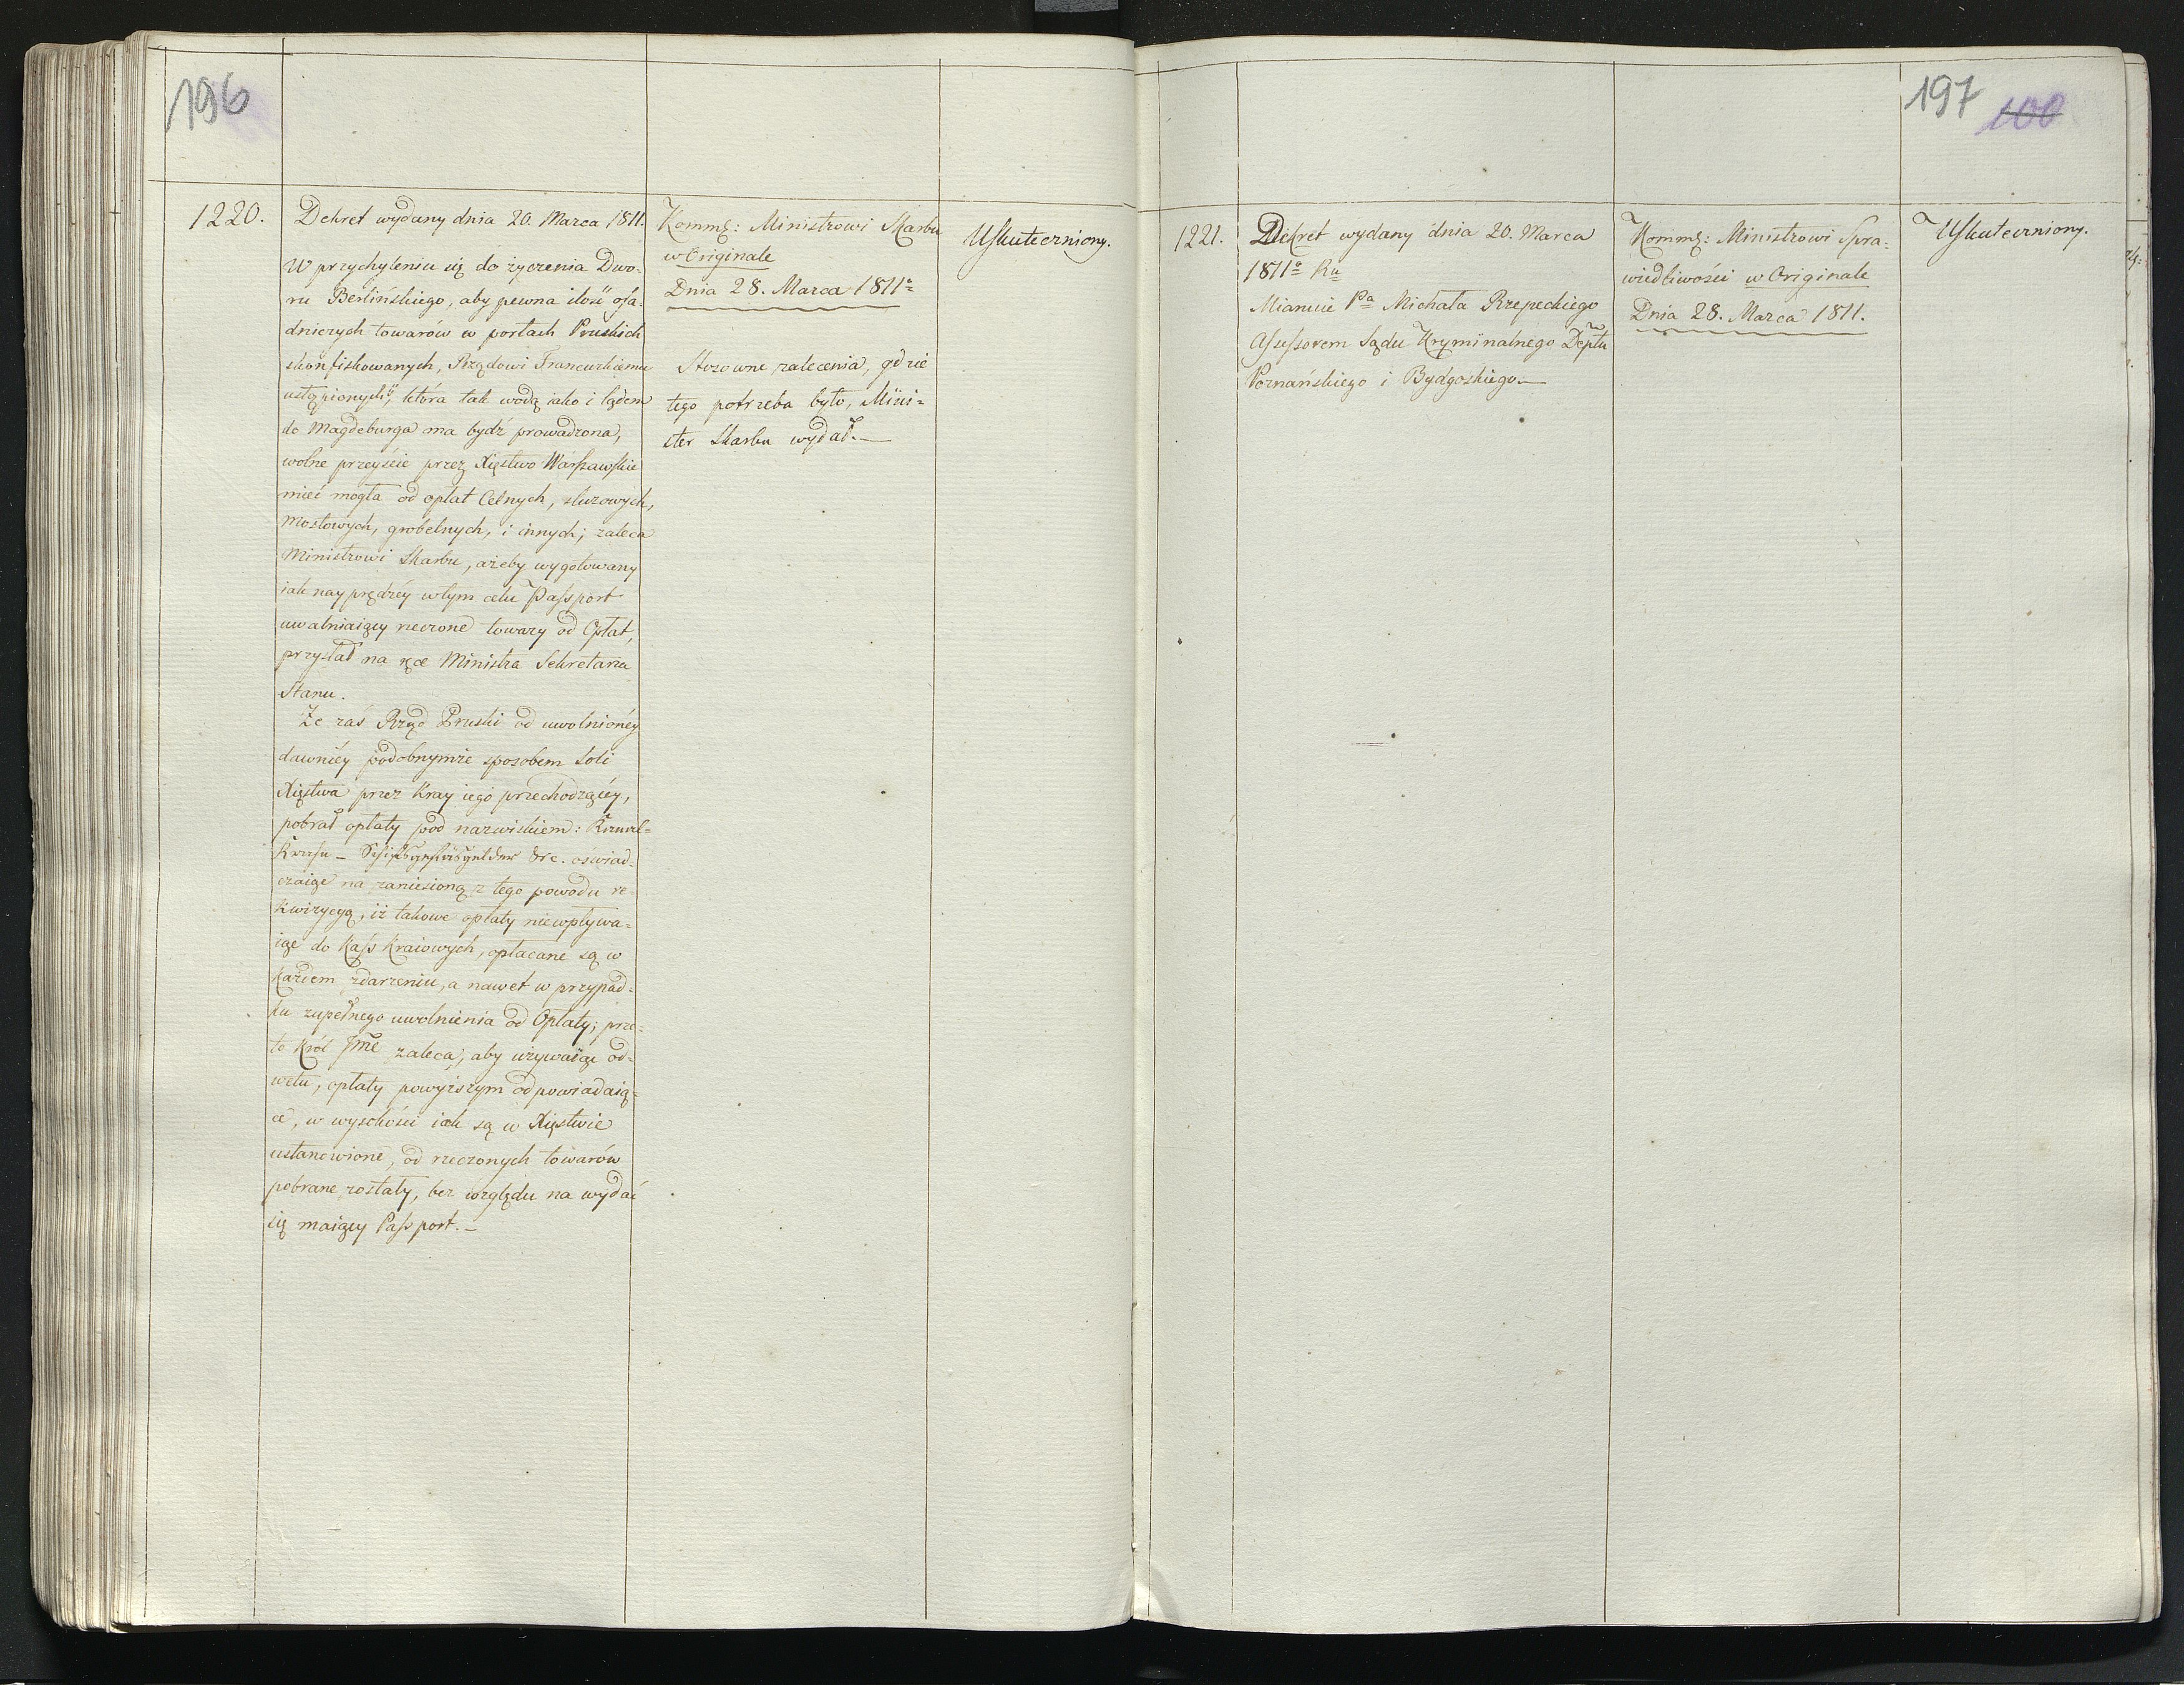 196
1220.
Dekret wydany dnia 20. Marca 1811.
W przychyleniu się do życzenia Dwo-
ru Berlińskiego, aby pewna ilość osa-
dniczych towarów w portach Pruskich
skonfiskowanych, Rządowi Francuzkiemu
ustąpionych, która tak wodą iako i lądem
do Magdeburga ma bydź prowadzona,
wolne przeyście przez Xięstwo Warszawskie
mieć mogła od opłat Celnych, szluzowych,
Mostowych, grobelnych, i innych; zaleca
Ministrowi Skarbu, ażeby wygotowany
iak nayprędzéy w tym celu Passport
uwalniaiący rzeczone towary od Opłat,
przysłał na ręce Ministra Sekretarza
Stanu.
Że zaś Rząd Pruski od uwolnionéy
dawniéy podobnymże sposobem Soli
Xięstwa przez Kray iego przechodzącéy,
pobrał opłaty pod nazwiskiem:
&c. oświad-
czaiąc na zaniesioną z tego powodu re-
kwizycyą, iż takowe opłaty niewpływa-
iąc do Kass Kraiowych, opłacane są w
każdem zdarzeniu, a nawet w przypad-
ku zupełnego uwolnienia od Opłaty; prze-
to Król Jmć zaleca, aby używaiąc od-
wetu, opłaty powyższym odpowiadaią-
ce, w wysokości iak są w Xięstwie
ustanowione, od rzeczonych towarów
pobrane zostały, bez względu na wydać
się maiący Passport.
Kommę: Ministrowi Skarbu
w Originale
Dnia 28. Marca 1811o
Stosowne zalecenia, gdzie
tego potrzeba było, Mini-
ster Skarbu wydał.
Uskuteczniony.
197 100
1221.
Dekret wydany dnia 20. Marca
1811o Ru
Mianuie Pa Michała Rzepeckiego
Assessorem Sądu Kryminalnego Deptu
Poznańskiego i Bydgoskiego
Kommę: Ministrowi Spra-
wiedliwości w Originale
Dnia 28. Marca 1811.
Uskuteczniony.